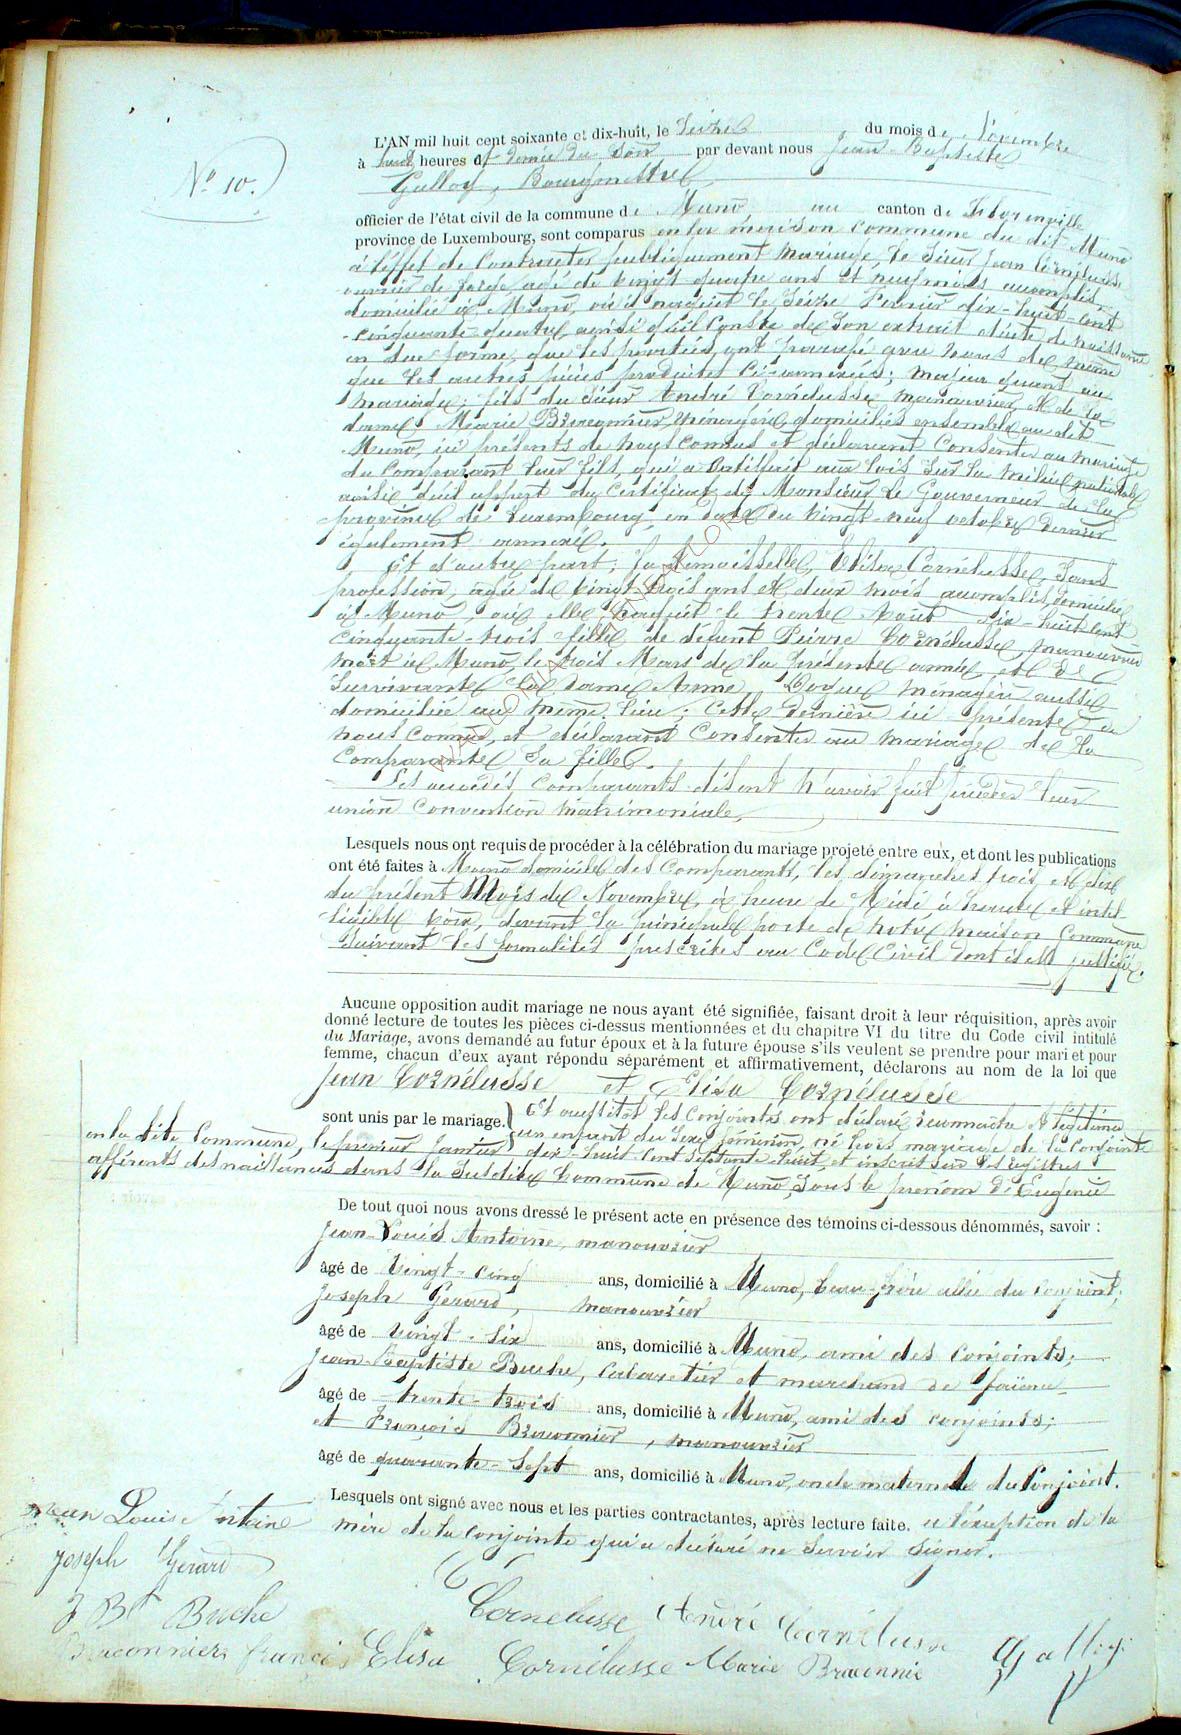 N° 10.
L'AN mil huit cent soixante et dix-huit, le Seize du mois de Novembre
à huit heures et demie du Soir par devant nous Jean-Baptiste
Galloy, Bourgmestre
officier de l'état civil de la commune de Muno au canton de Florenville
province de Luxembourg, sont comparus en la maison commune du dit Muno
à l'effet de Contracter publiquement Mariage, le Sieur Jean Cornélusse
ouvrier de forge, agé de vingt quatre ans et neuf mois accomplis,
domicilié à Muno, où il naquit le Seize Février dix-huit-cent
-cinquante-quatre, ainsi qu'il Conste de Son extrait d'acte de naissance
en due forme, que les parties ont paraphé avec nous de même
que les autres pièces produites ci-annexées; majeur quant au
mariage; fils du Sieur André Cornélusse manouvrier, et de la
dame Marie Braconnier, Ménagère, domiciliés ensemble au dit
Muno, ici présents de nous Connus et déclarant Consentir au Mariage
du Comparant leur fils, qui a Satisfait aux lois Sur la milice nationale
ainsi qu'il appert du Certificat de Monsieur le Gouverneur de la
province de Luxembourg en date du vingt-neuf octobre dernier
également annexé.
Et d'autre part; la demoiselle, Elisa Cornélusse, Sans
profession, agée de vingt trois ans et deux mois accomplis, domiciliée
à Muno, où elle naquit le trente Août dix-huit cent
cinquante-trois fille de défunt Pierre Cornélusse, manouvrier
mort à Muno, le trois Mars de la présente année, et de
Survivante la dame Anne ménagère aussi
domiciliée au même lieu; cette dernière ici présente de
nous Connue, et déclarant Consentir au mariage de la
Comparante Sa fille.
Les comparants disent n'avoir fait précéder leur
union Convention Matrimoniale.
Lesquels nous ont requis de procéder à la célébration du mariage projeté entre eux, et dont les publications
ont été faites à Muno domicile des Comparants, les dimanches trois et dix
du présent Mois de Novembre, à heure de Midi à haute et intel-
ligible voix, devant la principale porte de notre maison Commune
Suivant les formalités prescrites au Code Civil dont il est justifié.
Aucune opposition audit mariage ne nous ayant été signifiée, faisant droit à leur réquisition, après avoir
donné lecture de toutes les pièces ci-dessus mentionnées et du chapitre VI du titre du Code civil intitulé
du Mariage, avons demandé au futur époux et à la future épouse s'ils veulent se prendre pour mari et pour
femme, chacun d'eux ayant répondu séparément et affirmativement, déclarons au nom de la loi que
Jean Cornélusse et Elisa Cornélusse
sont unis par le mariage. Et aussitôt les Conjoints ont déclaré reconnaître et légitimer
un enfant du Sexe féminin, né hors mariage de la Conjointe
en la dite Commune, le premier Janvier dix-huit Cent Septante-huit, et inscrit sur les registres
afférents des naissances dans la Susdite Commune de Muno, Sous le prénom d'Eugénie
De tout quoi nous avons dressé le présent acte en présence des témoins ci-dessous dénommés, savoir :
Jean-Louis Antoine, manouvrier
âgé de vingt-cinq ans, domicilié à Muno, beau-frère allié du conjoint;
Joseph Gerard, manouvrier
âgé de vingt-six ans, domicilié à Muno, ami des conjoints;
Jean-Baptiste Buche, Cabaretier et marchand de faïence
âgé de trente-trois ans, domicilié à Muno, ami des conjoints;
et François Braconnier, manouvrier
âgé de quarante-Sept ans, domicilié à Muno, oncle maternel du Conjoint.
Lesquels ont signé avec nous et les parties contractantes, après lecture faite. à l'éxception de la
mère de la Conjointe qui a déclaré ne Savoir Signer.
Jean Louis Antoine
Joseph Gérard
J Bt Buche
Cornelusse André Cornélusse
Braconnier françois Elisa Cornélusse Marie Braconnie Galloy